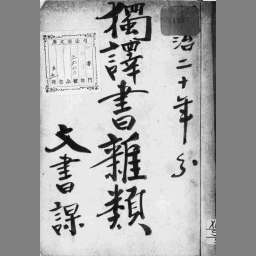 治二十年分
獨譯書雜類
文書課